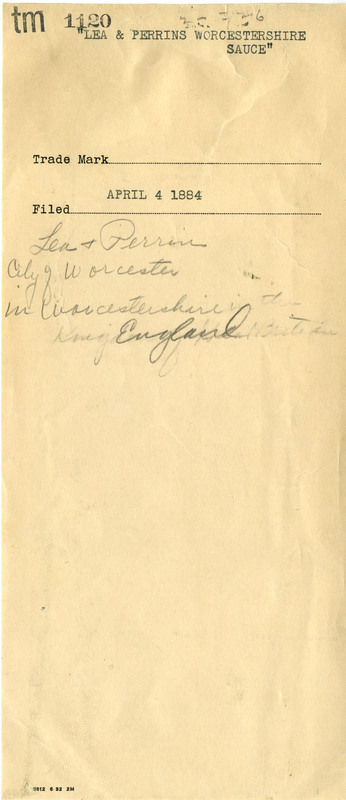 tm 1120
"LEA & PERRINS WORCESTERSHIRE
SAUCE"
Trade Mark
APRIL 4 1884
Filed
Lea & Perrin
City of Worcester
in Worcestershire in the
King England Britain
6 32 2M